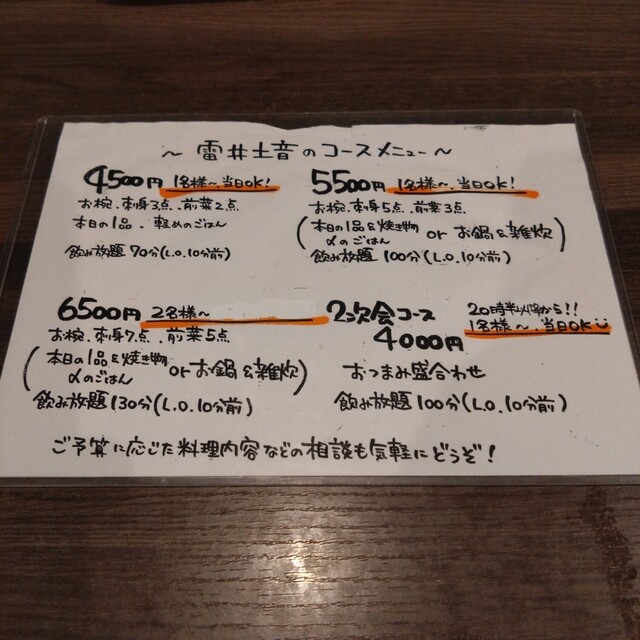 ～ 雷井土音のコースメニュー～
4500円 1名様～、当日OK!
お椀、刺身3点、前菜2点
本日の1品、軽めのごはん
飲み放題 70分(L.O.10分前)
5500円 1名様～、当日OK!
お椀、刺身5点、前菜3点
(本日の1品&焼き物 〆のごはん or お鍋&雑炊)
飲み放題 100分(L.O.10分前)
6500円 2名様～
お椀、刺身7点、前菜5点
(本日の1品&焼き物 〆のごはん or お鍋&雑炊)
飲み放題 130分(L.O.10分前)
2次会コース 20時半以降から!!
4000円 1名様～、当日OK
おつまみ盛合わせ
飲み放題 100分(L.O.10分前)
ご予算に応じた料理内容などの相談も気軽にどうぞ!